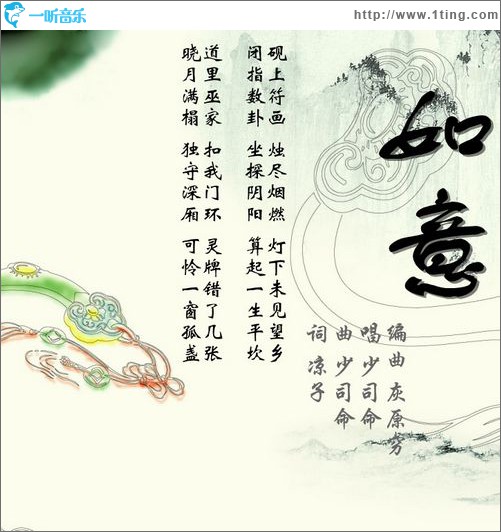 一听音乐
http://www.1ting.com
如意
编曲 灰原穷
唱 少司命
曲 少司命
词 凉子
砚上符画 烛尽烟燃 灯下未见望乡
闭指数卦 坐探阴阳 算起一生平坎
道里巫家 扣我门环 灵牌错了几张
晓月满榻 独守深厢 可怜一窗孤盏